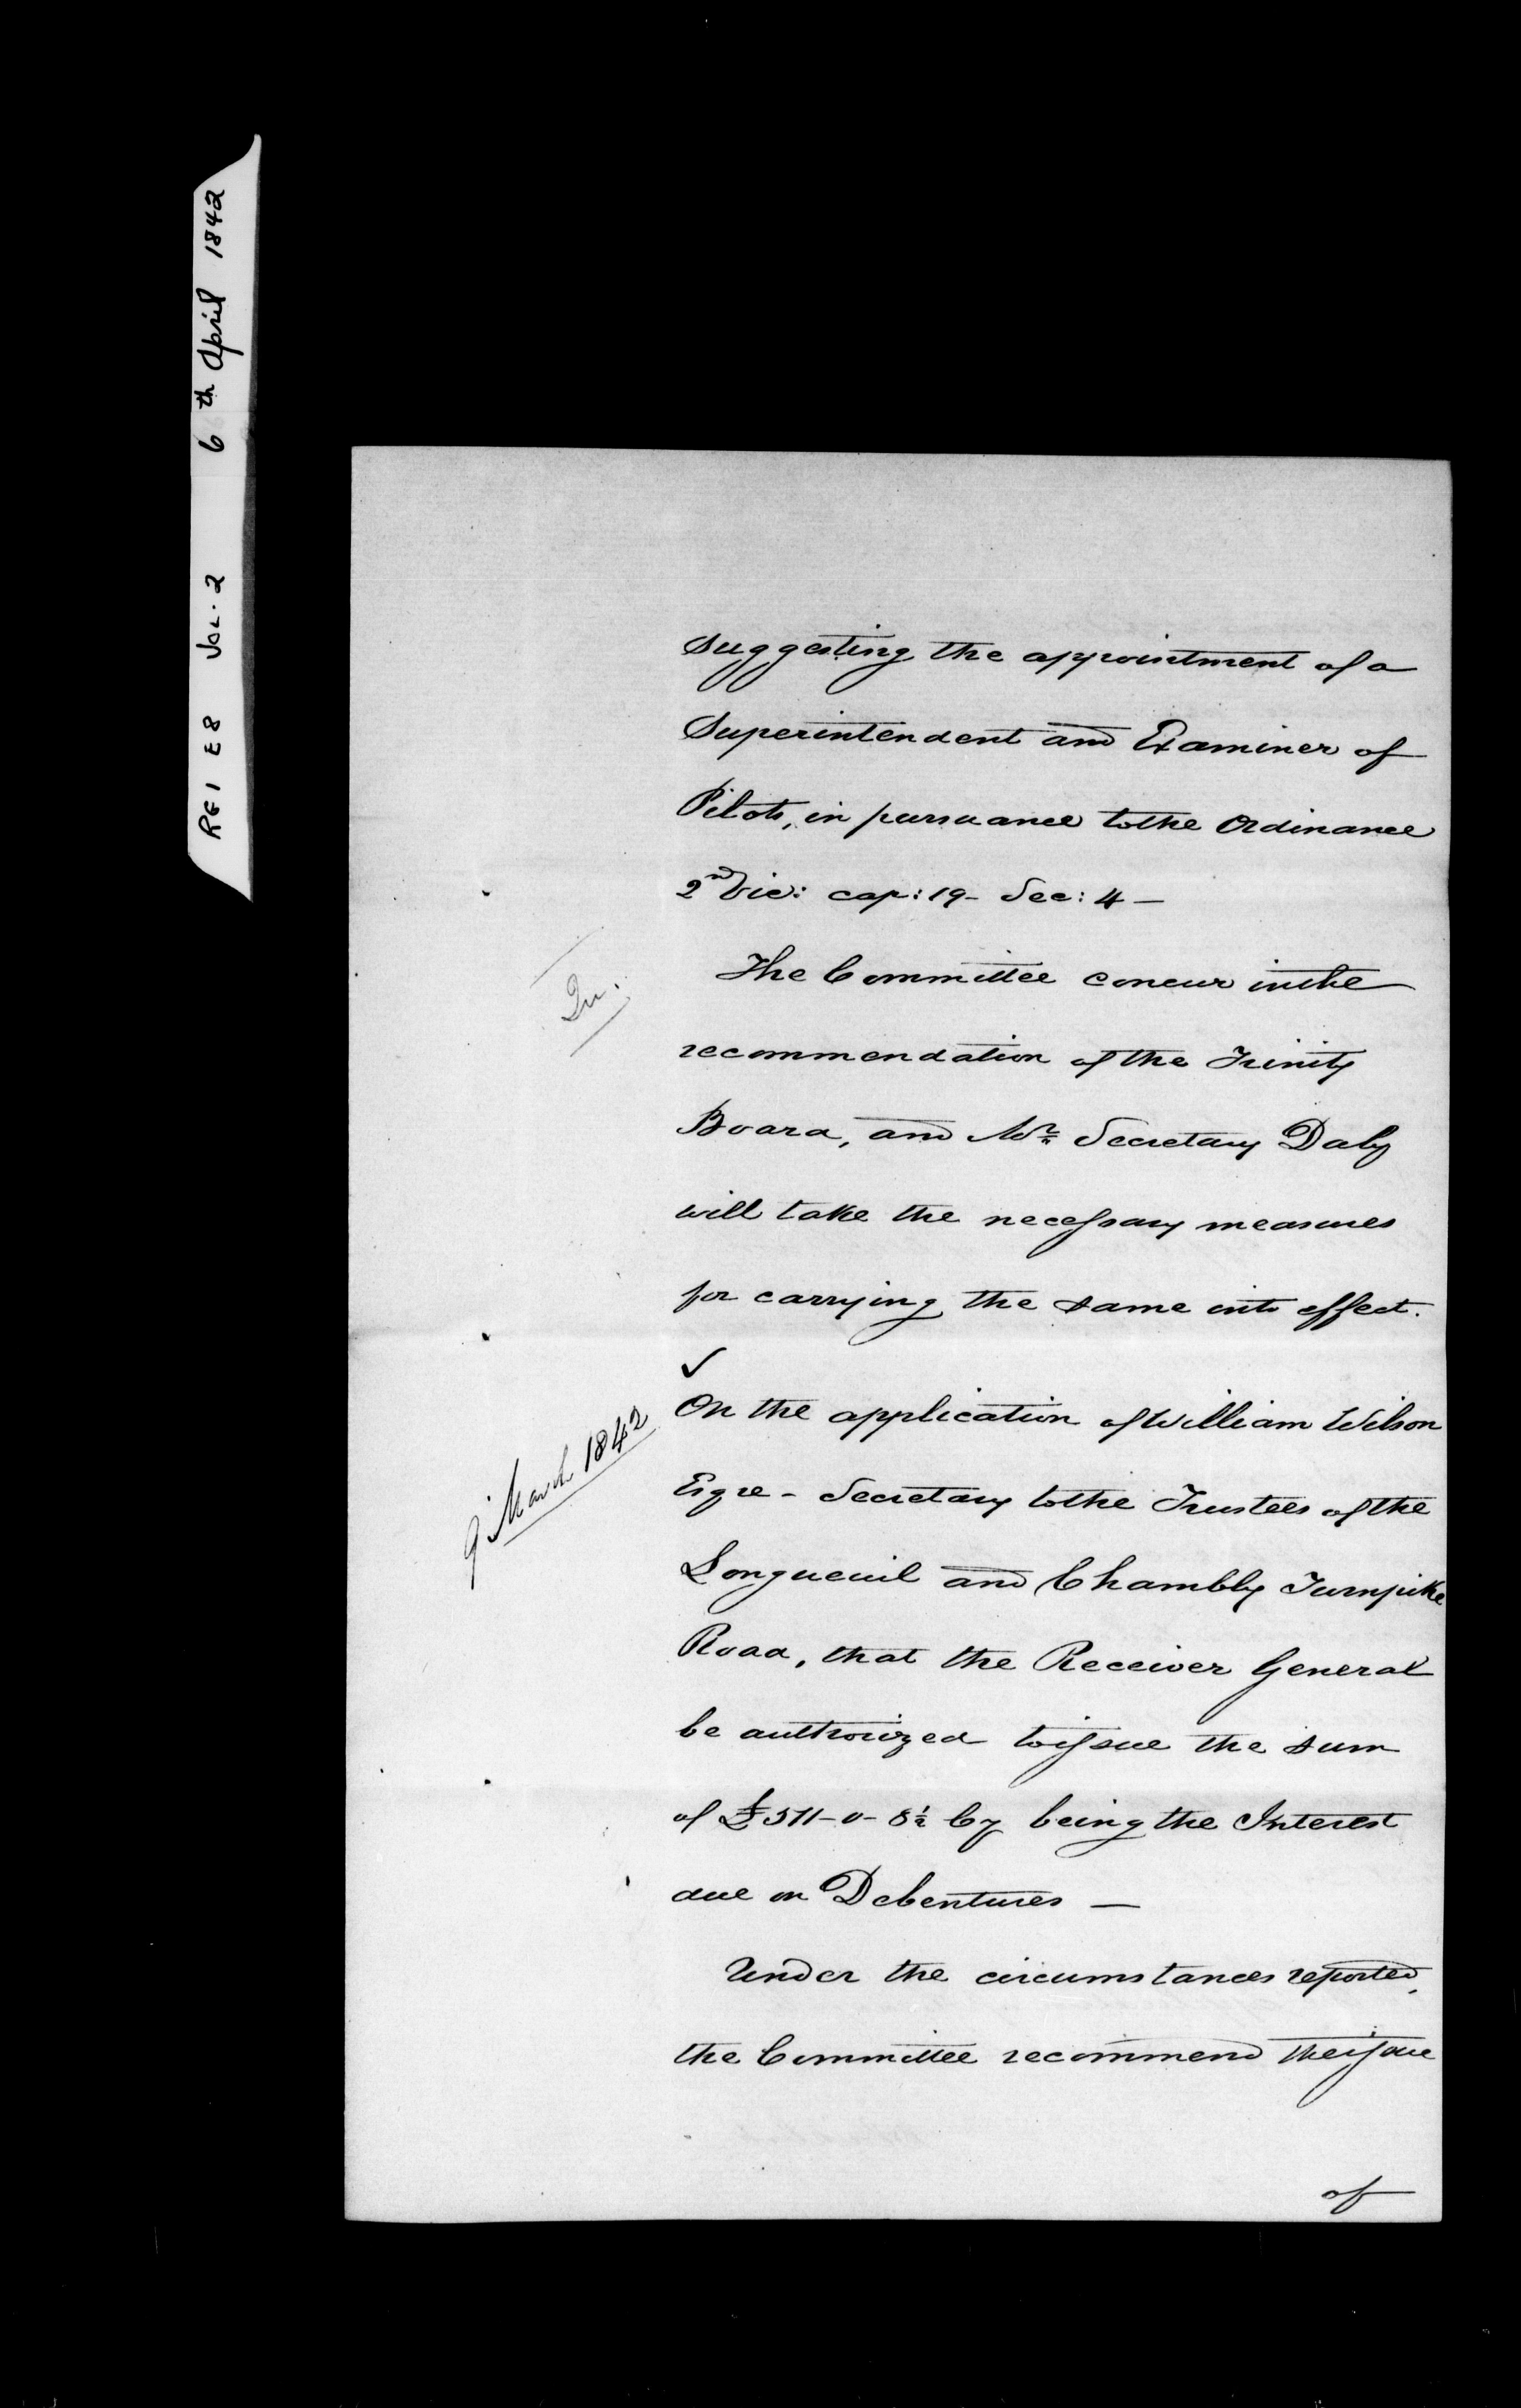 RG1 E8 Vol. 2 6th April 1842
suggesting the appointment of a
Superintendent and Examiner of
Pilots, in pursuance to the Ordinance
2nd Vic: cap: 19- Sec: 4 —
The Committee concur in the
recommendation of the Trinity
Board, and Mr. Secretary Daly
will take the necessary measures
for carrying the same into effect.
9 March 1842
On the application of William Wilson
Esqre - Secretary to the Trustees of the
Longueuil and Chambly Turnpike
Road, that the Receiver General
be authorized to issue the sum
of £511-0-8½ Cy being the Interest
due on Debentures —
Under the circumstances reported,
the Committee recommend the issue
of